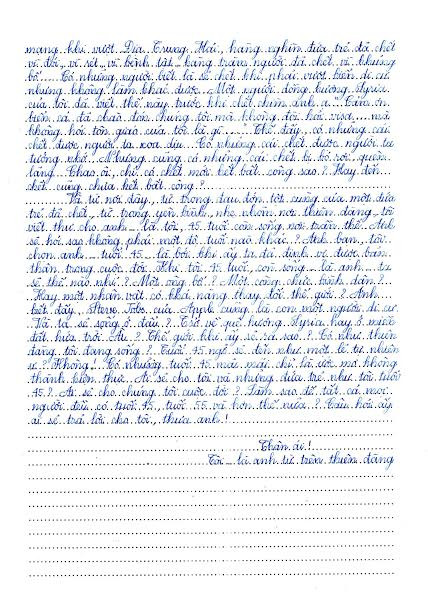 mạng khi vượt Địa Trung Hải, hàng nghìn đứa trẻ đã chết
vì đói, vì rét, vì bệnh tật, hàng trăm người đã chết vì khủng
bố... Có những người biết là sẽ chết khi phải vượt biển di cư
nhưng không làm khác được. Một người đồng hương Syria
của tôi đã viết thế này trước khi chết chìm anh ạ: "Cảm ơn
biển cả đã chào đón chúng tôi mà không đòi hỏi visa, mà
không hỏi tôn giáo của tôi là gì..." Thế đấy, có những cái
chết được người ta xoa dịu. Có những cái chết được người ta
tưởng nhớ. Nhưng cũng có những cái chết bị bỏ rơi, quên
lãng. Chao ôi, chỉ có chết mới hết bất công sao? Hay đến
chết cũng chưa hết bất công?
Và từ nơi đây, từ trong đau đớn tột cùng của một đứa
trẻ đã chết, từ trong yên bình, nhẹ nhõm nơi thiên đàng, tôi
viết thư cho anh - là tôi, 45 tuổi còn sống nơi trần thế. Anh
sẽ hỏi sao không phải một độ tuổi nào khác? Anh bạn, tôi
chọn anh - tuổi 45 - là bởi khi ấy ta đã định vị được bản
thân trong cuộc đời. Khi tôi 45 tuổi, còn sống - là anh, ta
sẽ thế nào nhỉ? Một ông bố? Một công chức bình dân?
Hay một nhân vật có khả năng thay đổi thế giới? Anh
biết đấy, Steve Jobs của Apple cũng là con một người di cư.
Và ta sẽ sống ở đâu? Trở về quê hương Syria hay ở miền
đất hứa trời Âu? Thế giới khi ấy sẽ ra sao? Có như thiên
đàng tôi đang sống? Tuổi 45 ngỡ sẽ đến như một lẽ tự nhiên
ư? Không! Có những tuổi 45 mãi mãi chỉ là ước mơ không
thành hiện thực. Ai sẽ cho tôi và những đứa trẻ như tôi tuổi
45? Ai sẽ cho chúng tôi cuộc đời? Làm sao để tất cả mọi
người đều có tuổi 45, tuổi 55 và hơn thế nữa? Câu hỏi ấy
ai sẽ trả lời cho tôi, thưa anh!
Thân ái!
Tôi - là anh từ trên thiên đàng